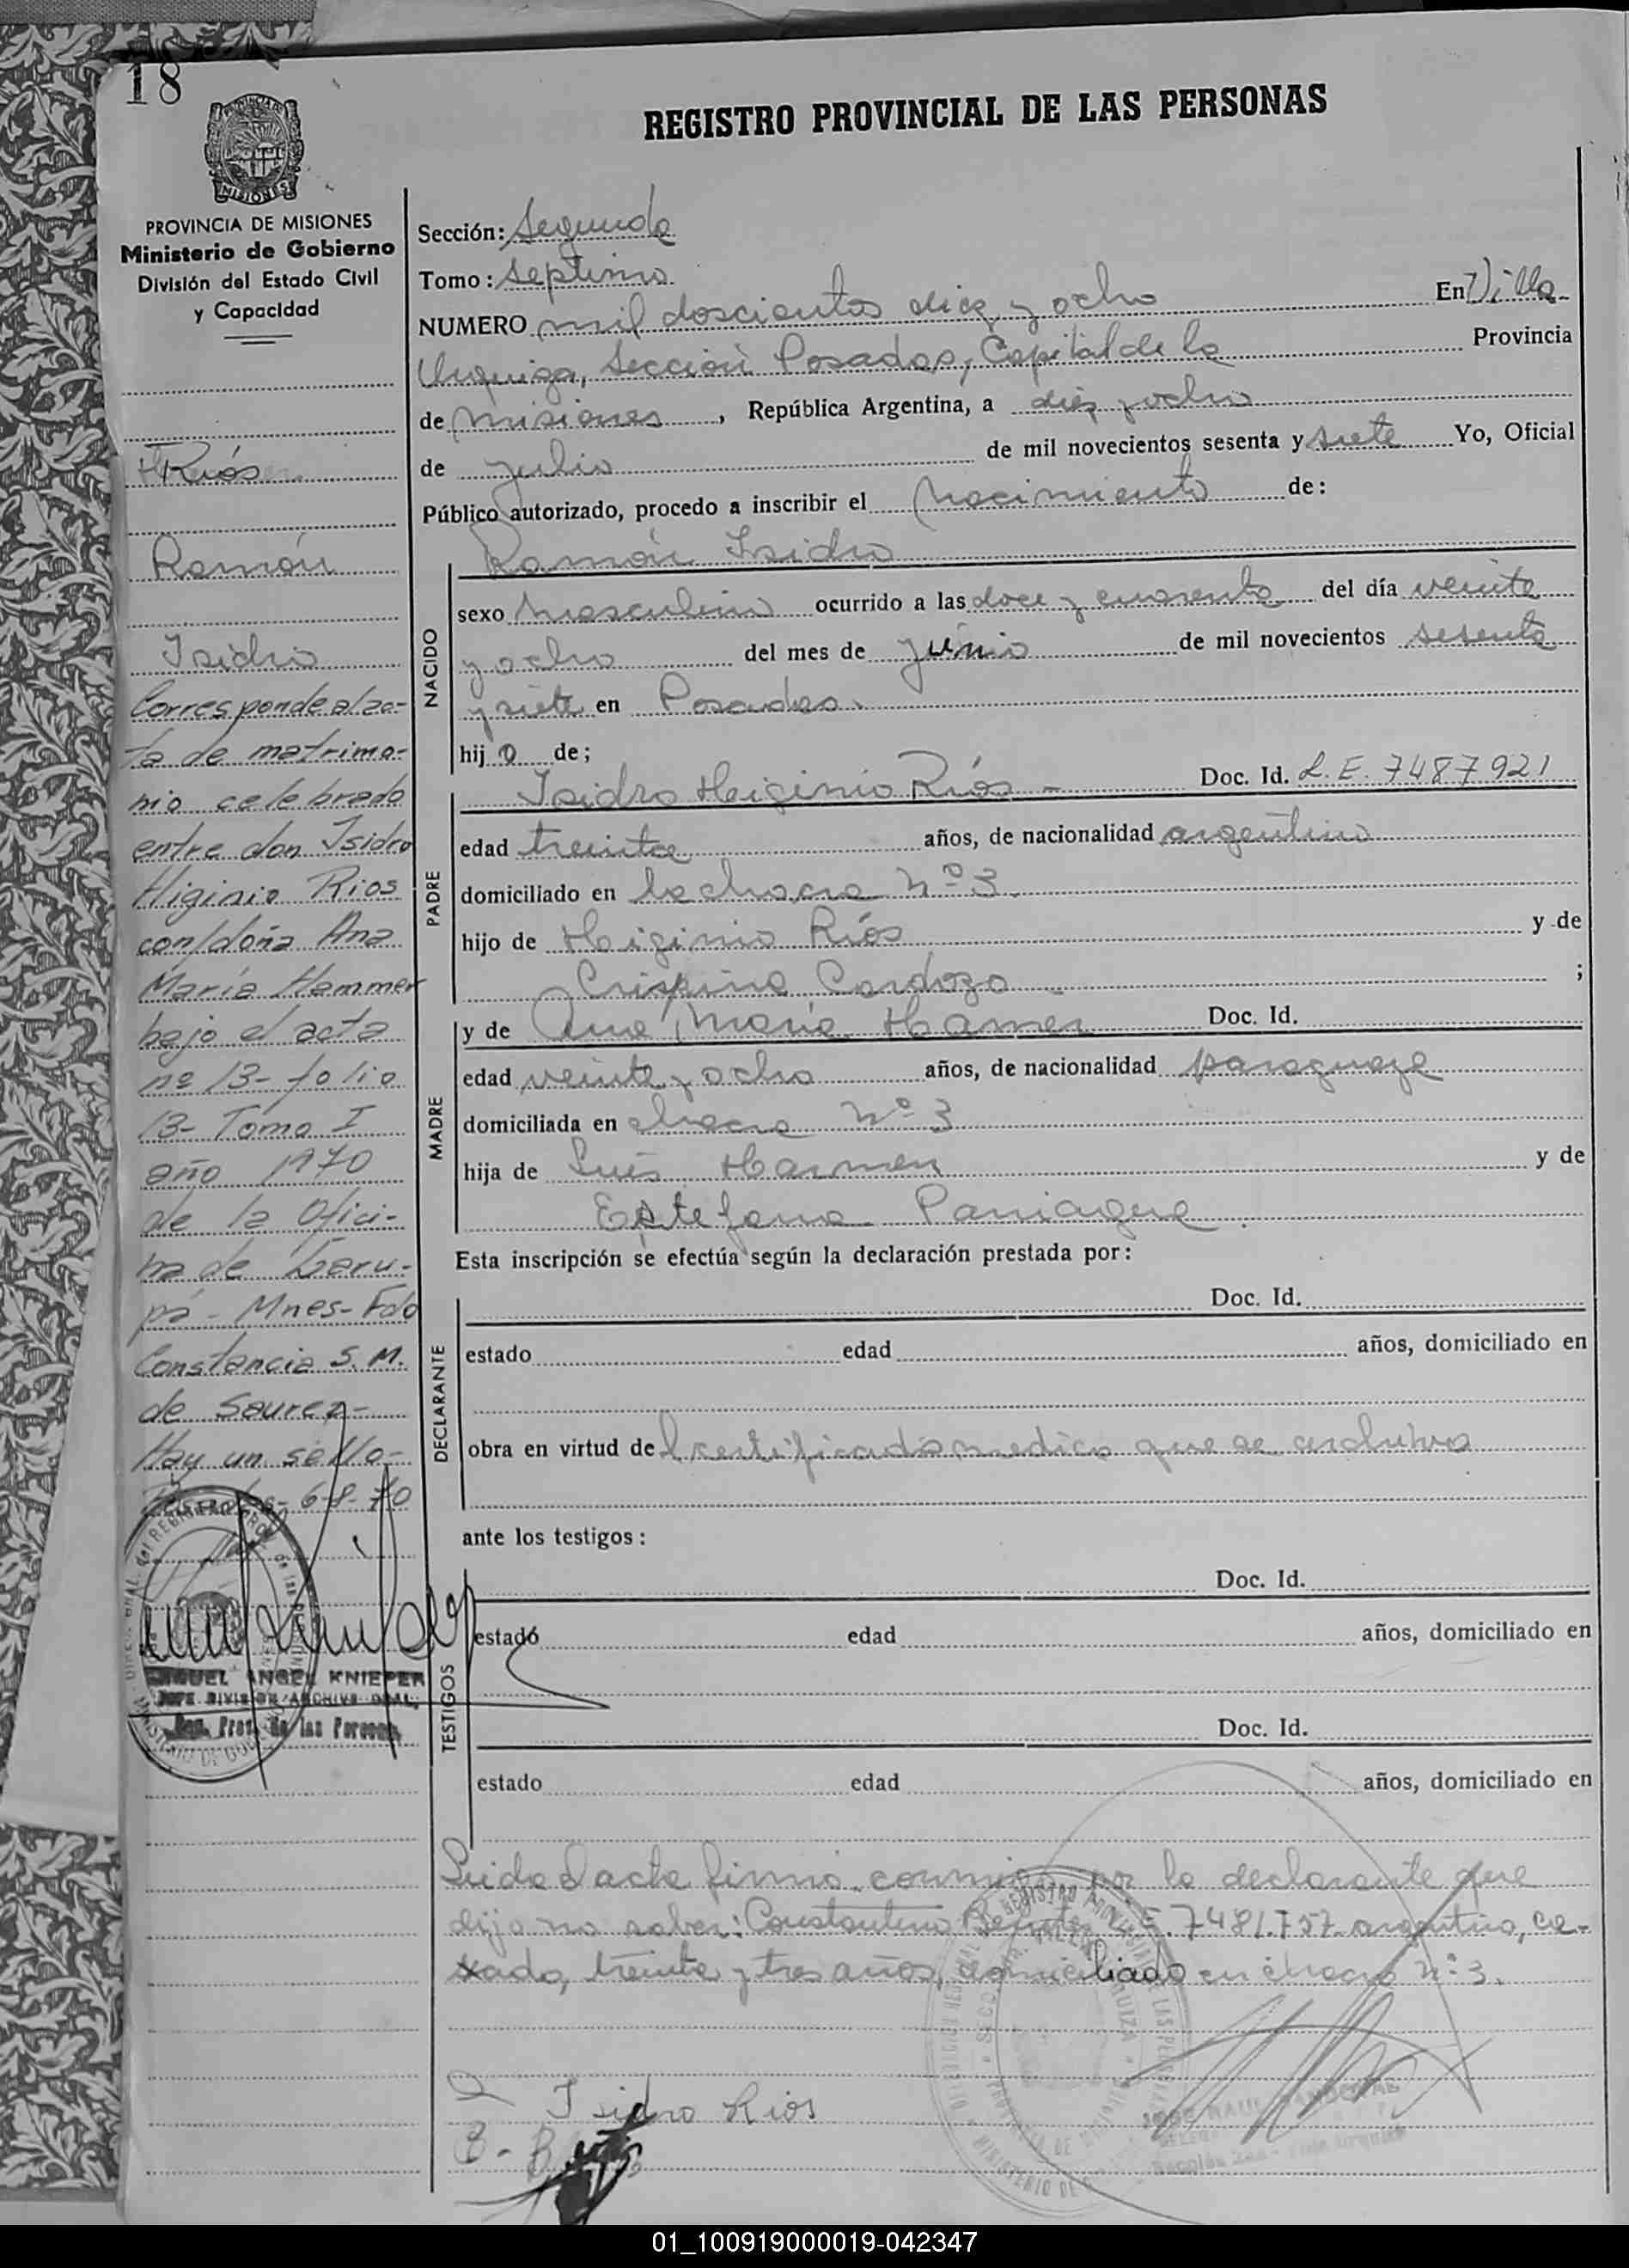 18
REGISTRO PROVINCIAL DE LAS PERSONAS
PROVINCIA DE
MISIONES
PROVINCIA DE MISIONES
Ministerio de Gobierno
División del Estado Civil
y Capacidad
Ríos
Ramón
Isidro
Corresponde al ac-
ta de matrimo-
nio celebrado
entre don Isidro
Higinio Rios
con doña Ana
María Hammer
bajo el acta
nº 13- folio
13- Tomo I
año 1970
de la Ofici-
na de Garu-
pá - Mnes- Fdo
Constancia S. M.
de Saurez-
Hay un sello-
6-8-70
MIGUEL ANGEL KNIEPER
JEFE DIVISION ARCHIVO GRAL.
Reg. Prov. de las Personas
Sección: Segunda
Tomo: Septimo
NUMERO mil doscientos diez y ocho En Villa
Urquiza, Sección Posadas, Capital de la Provincia
de Misiones, República Argentina, a diez y ocho
de julio de mil novecientos sesenta y siete Yo, Oficial
Público autorizado, procedo a inscribir el Nacimiento de:
Ramón Isidro
NACIDO
sexo masculino ocurrido a las doce y cuarenta del día veinte
y ocho del mes de junio de mil novecientos sesenta
y siete en Posadas.
hijo de;
PADRE
Isidro Higinio Ríos - Doc. Id. L.E. 7487921
edad treinta años, de nacionalidad argentino
domiciliado en la chacra Nº 3
hijo de Higinio Ríos y de
Crispina Cardozo ;
MADRE
y de Ana María Hamer Doc. Id.
edad veinte y ocho años, de nacionalidad paraguaya
domiciliada en chacra Nº 3
hija de Luis Harmen y de
Estefana Paniagua.
Esta inscripción se efectúa según la declaración prestada por:
DECLARANTE
Doc. Id.
estado edad años, domiciliado en
obra en virtud de certificado medico que se archiva
ante los testigos:
TESTIGOS
Doc. Id.
estado edad años, domiciliado en
Doc. Id.
estado edad años, domiciliado en
Leida el acta firmó conmigo por la declarante que
dijo no saber: Constantino 7481.757 argentino, ca-
sado, treinta y tres años, domiciliado en chacra nº 3.
Isidro Rios
01_100919000019-042347